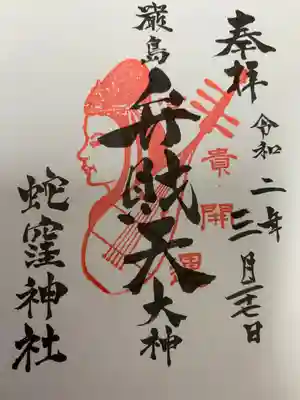 奉拝
令和二年三月二七日
貴
開運
厳島
弁財天
大神
蛇窪神社